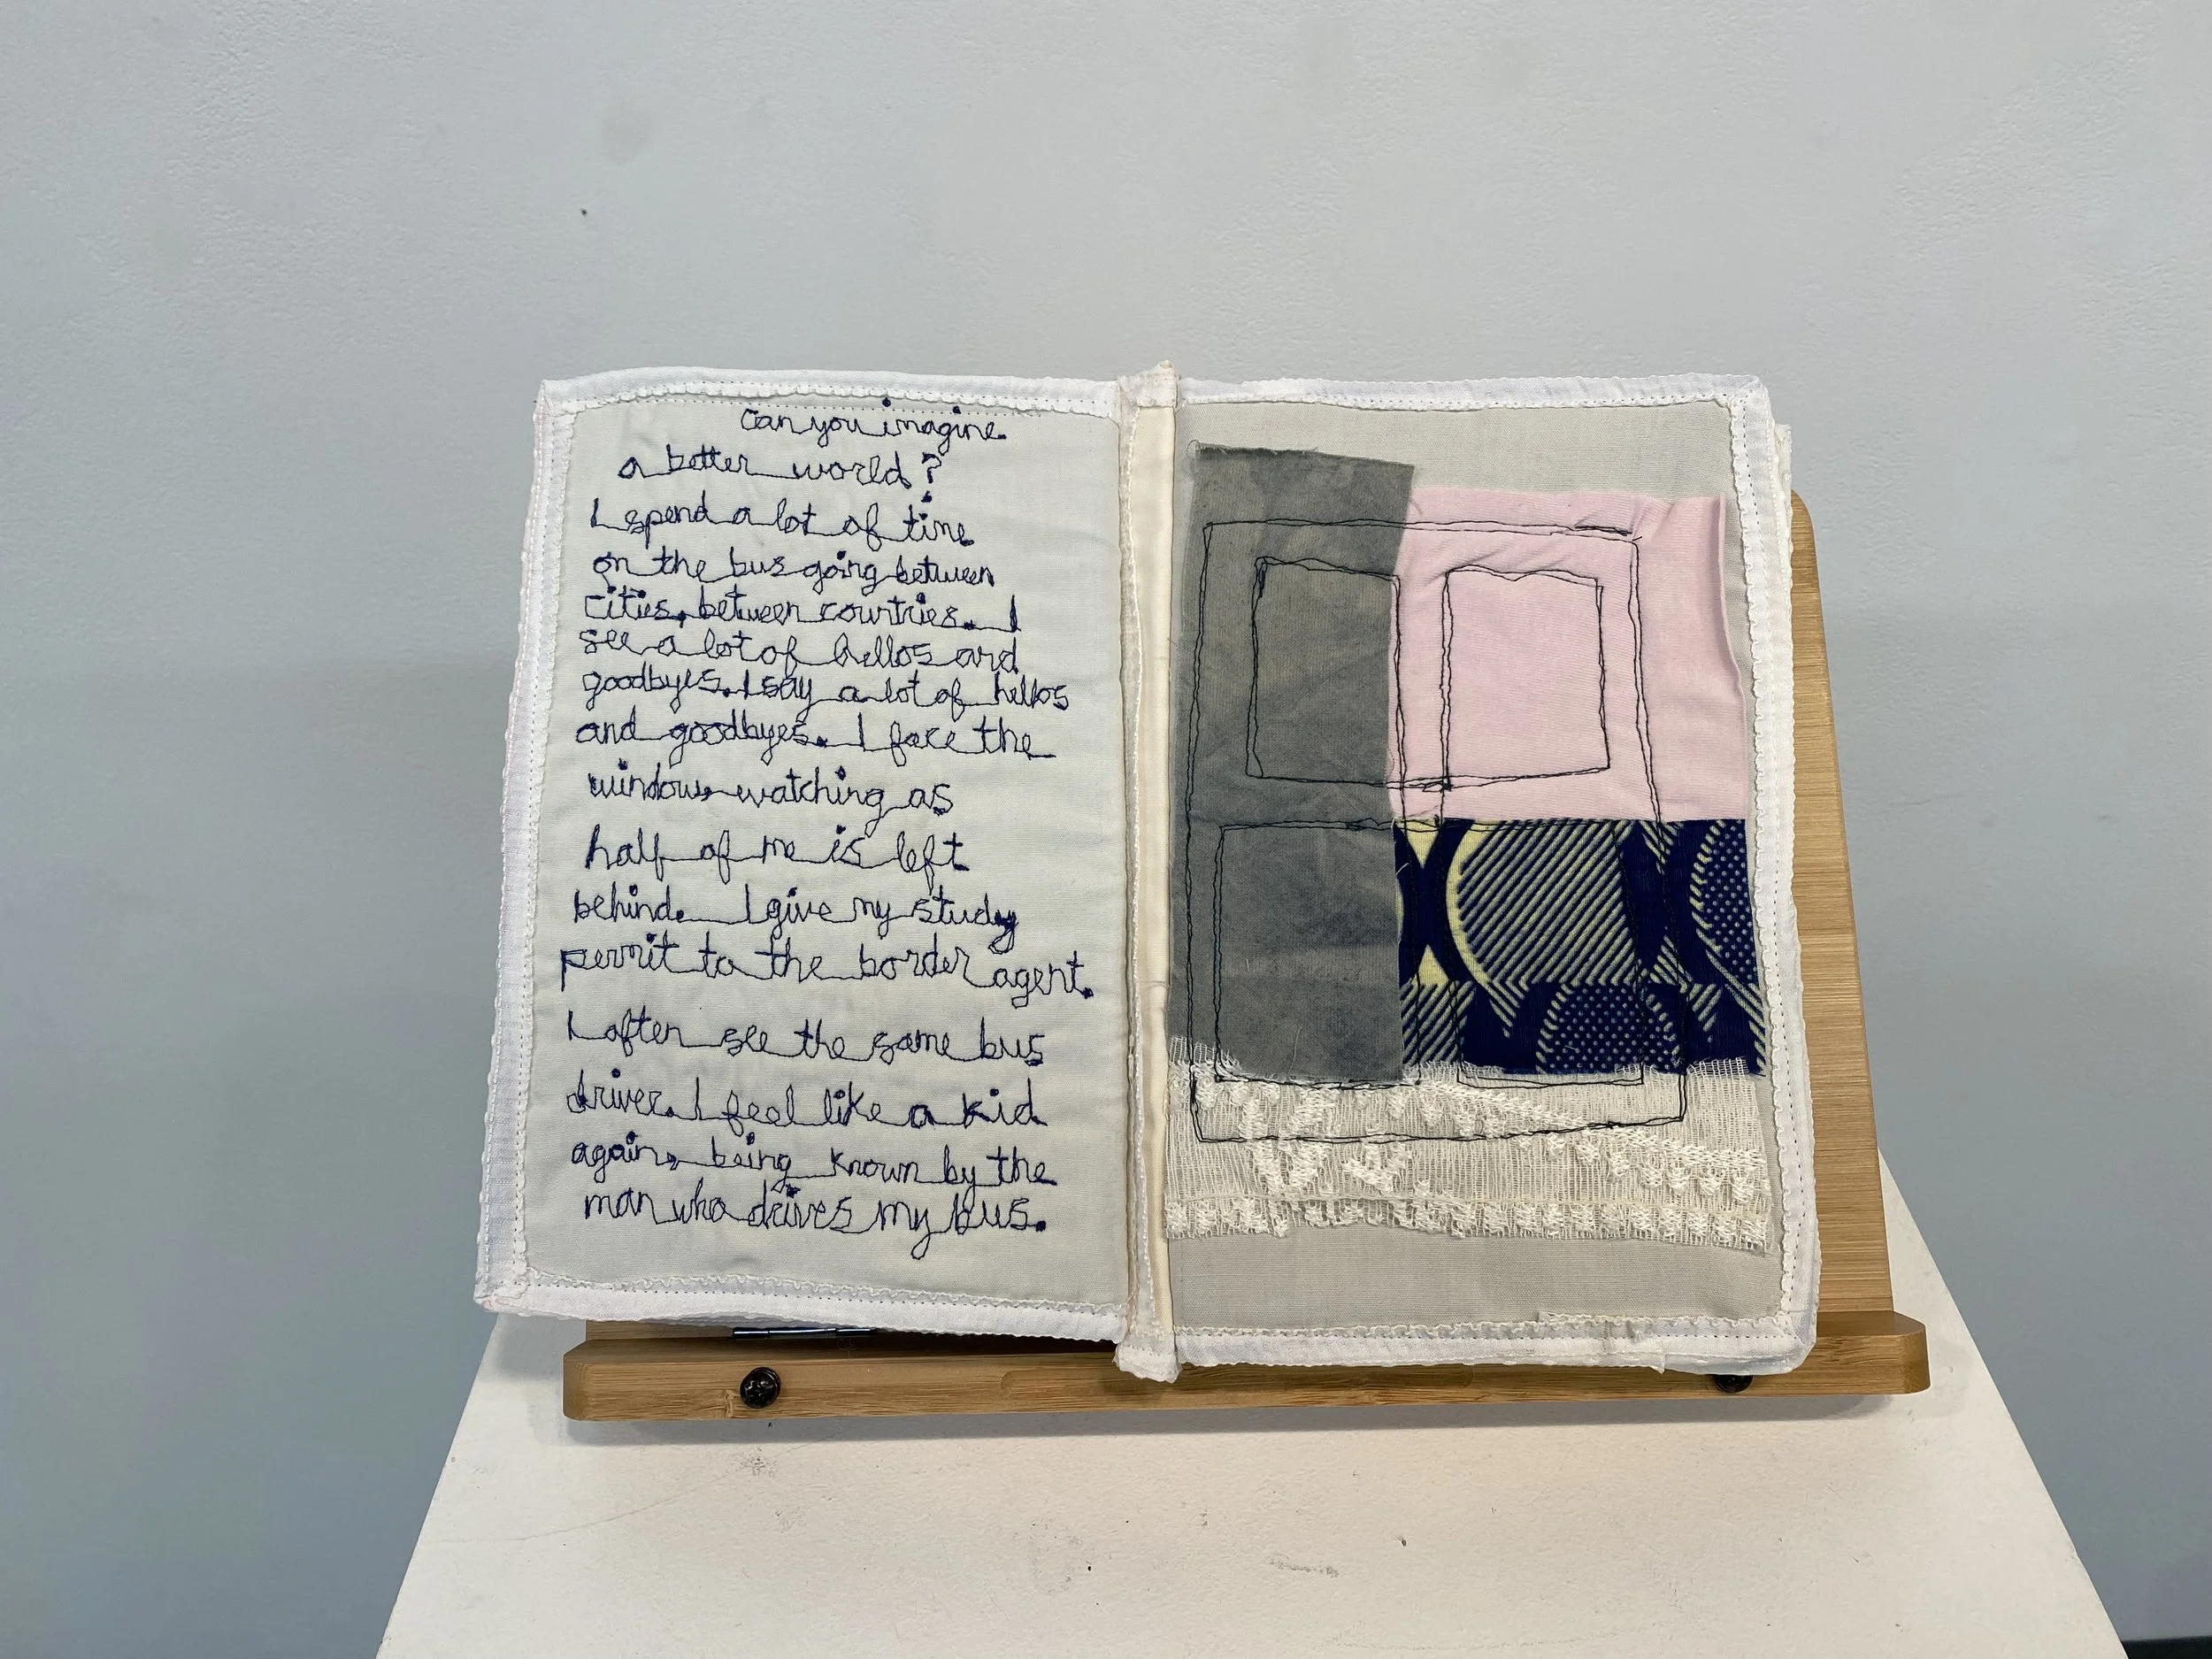 Can you imagine
a better world?
I spend a lot of time
on the bus going between
cities, between countries. I
see a lot of hellos and
goodbyes. I say a lot of hellos
and goodbyes. I face the
window watching as
half of me is left
behind. I give my study
permit to the border agent.
I often see the same bus
driver. I feel like a kid
again, being known by the
man who drives my bus.